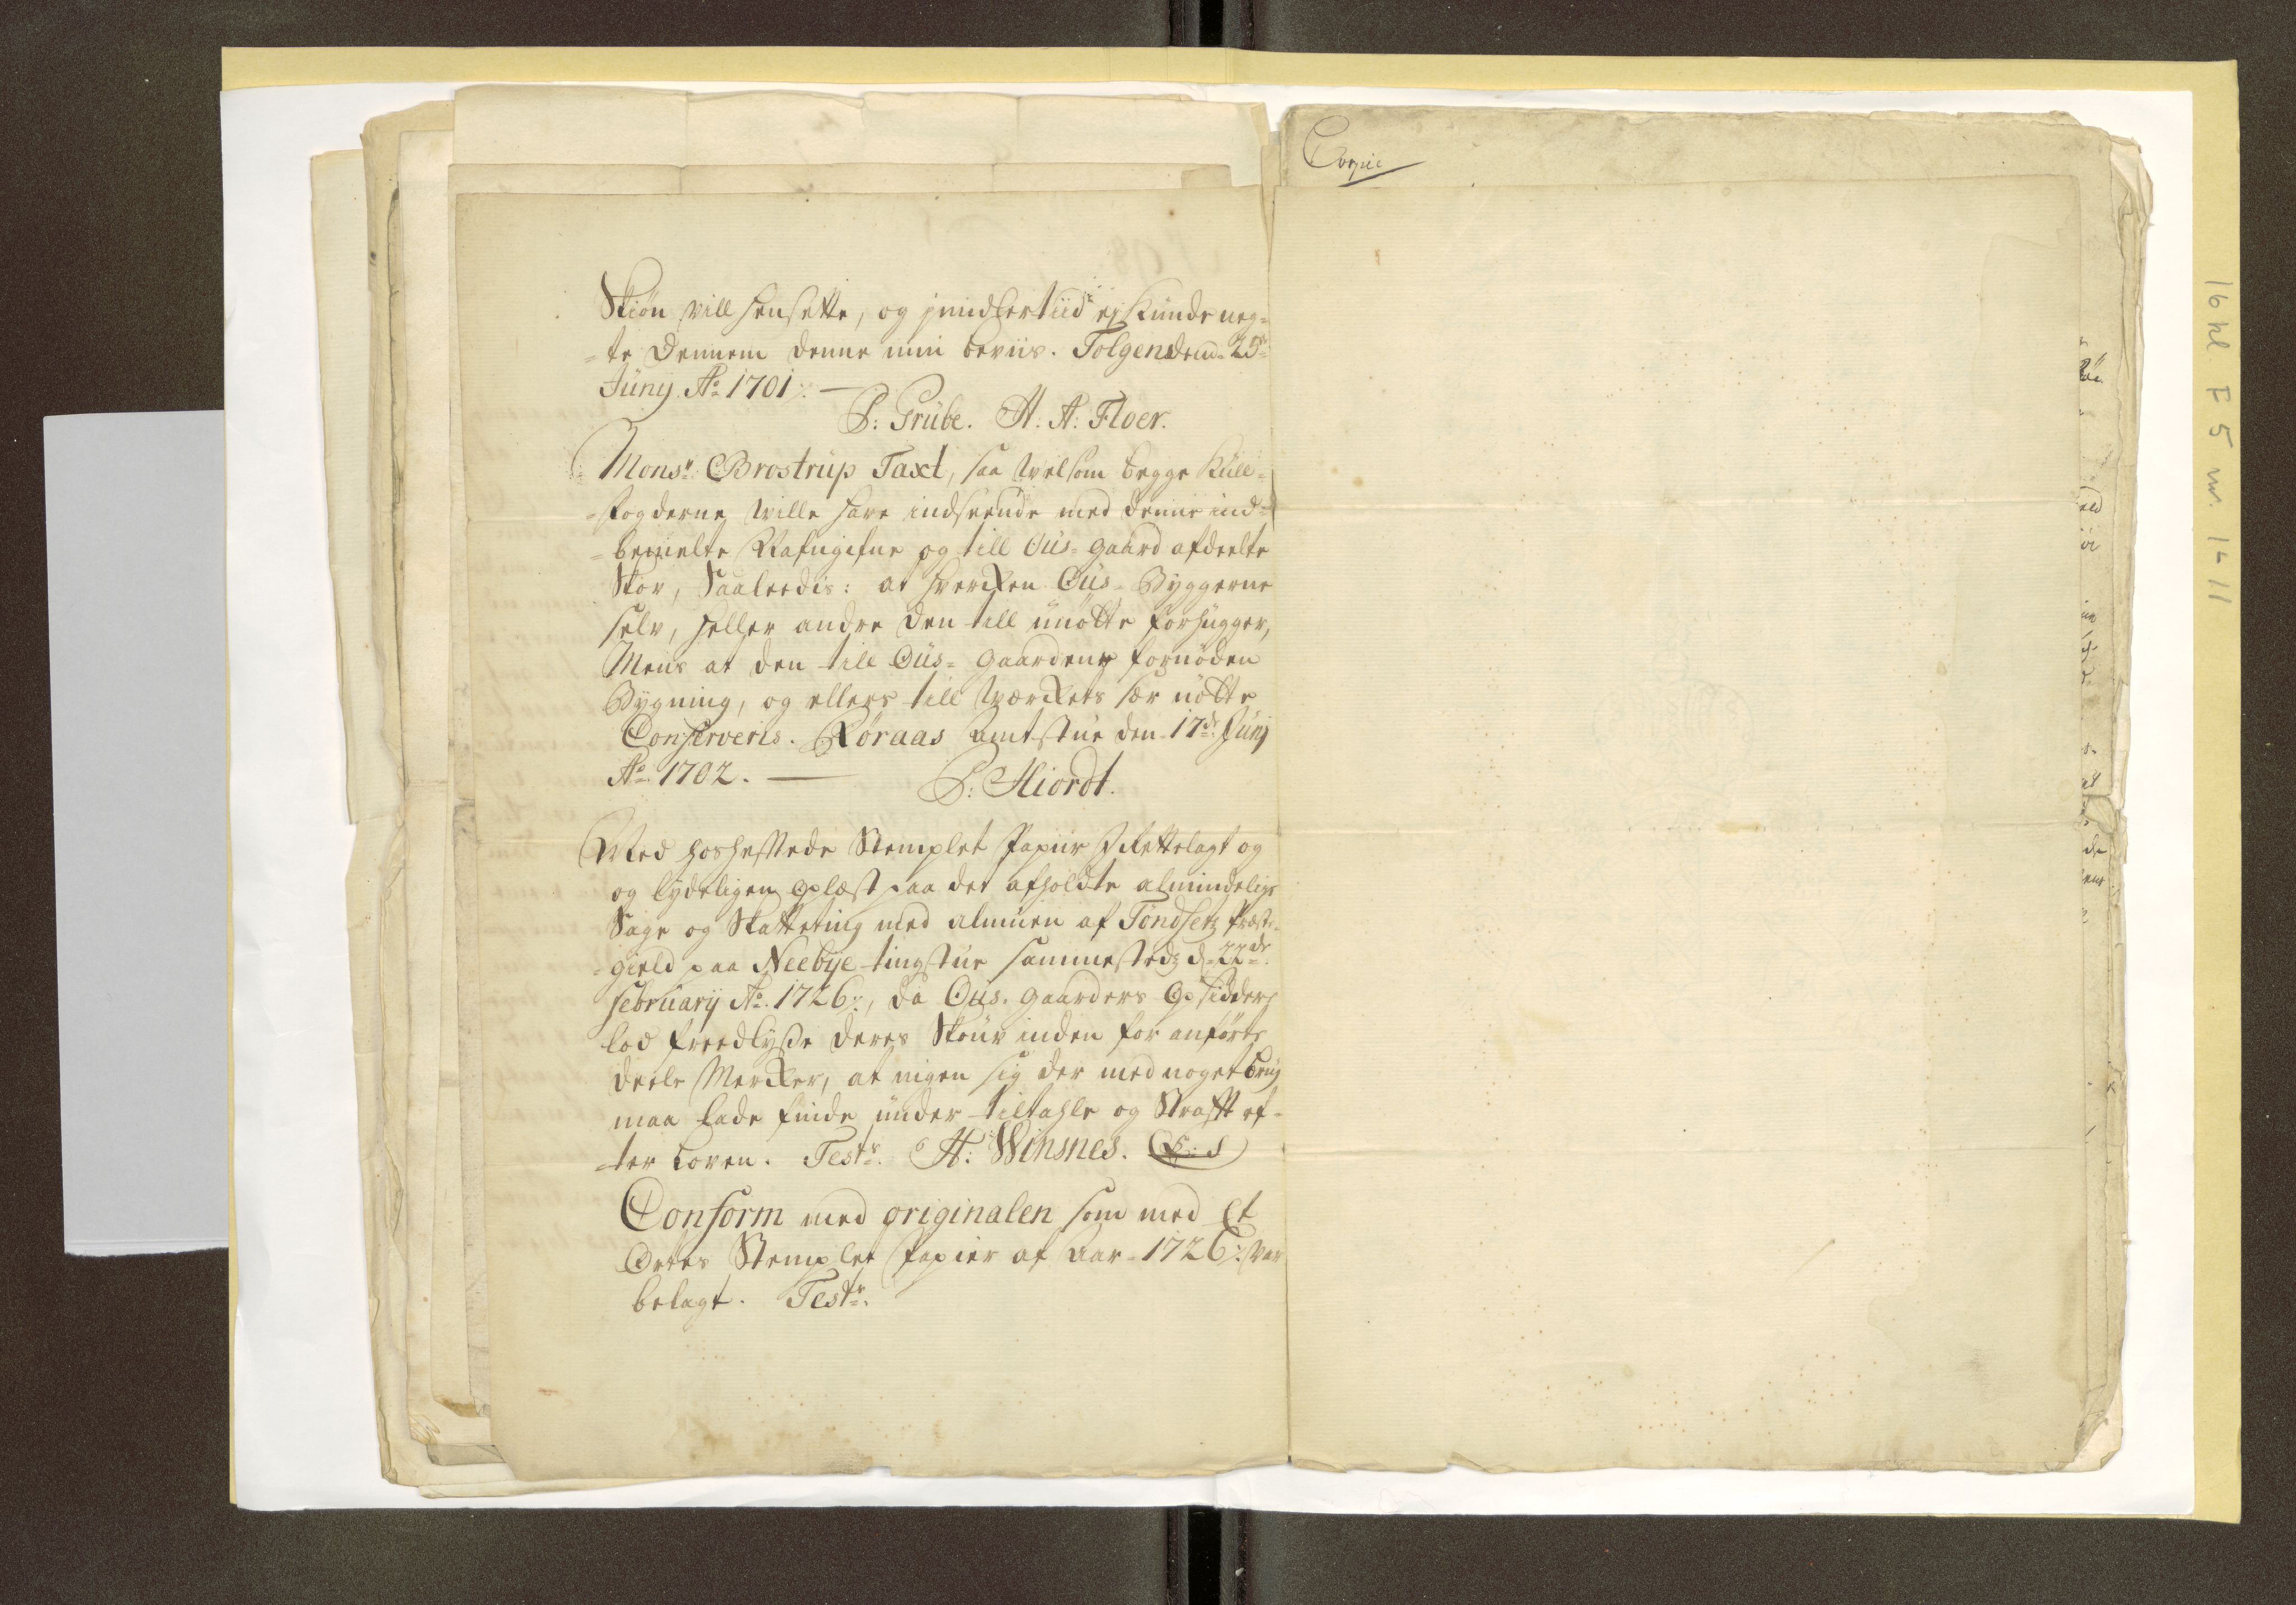 Skiøn vill hensette, og jmidlertiid ej kunde neg-
-te Dennem denne min beviis. Tolgen dend 25de
Junij Ao 1701.
P: Grübe. H. A: Floer.
Monsr Brostrup Taxt, saa welsom begge Kull-
-fogderne wille have indseende med denne ind-
-bemelte Nafngifne og till Ous-gaard afdeelte
Skov, Saaleedis: at hvercken Ous-Byggerne
selv, heller andre den till unøtte forhugger,
Mens at den till Ous-gaardens fornøden
Bygning, og ellers till Wærckets sær nøtte
Conserveris. Røraas Amtstue den 17de Junj
Ao 1702.
P: Hiordt.
Med hosheftede Stemplet Papiir J Rettelagt og
og lydeligen Oplæst paa det afholdte almindelige
Sage og Skatteting med almuen af Tøndsetz Præste-
-gield paa Neebye tingstue sammestedz d. 22de
February Ao 1726, da Ous-gaarders Opsidder
lod freedlysse deres Skouv inden for anførte
deele Mercker, at ingen sig der med noget brug
maa lade finde under tiltahle og Strafft ef-
-ter Loven. Testr. H: Winsnes. L.S
Conform med originalen som med Et
Ortes Stemplet Papier af Aar 1726 var
belagt. Testr.
Copie
16 hl F 5 nr. 1-11